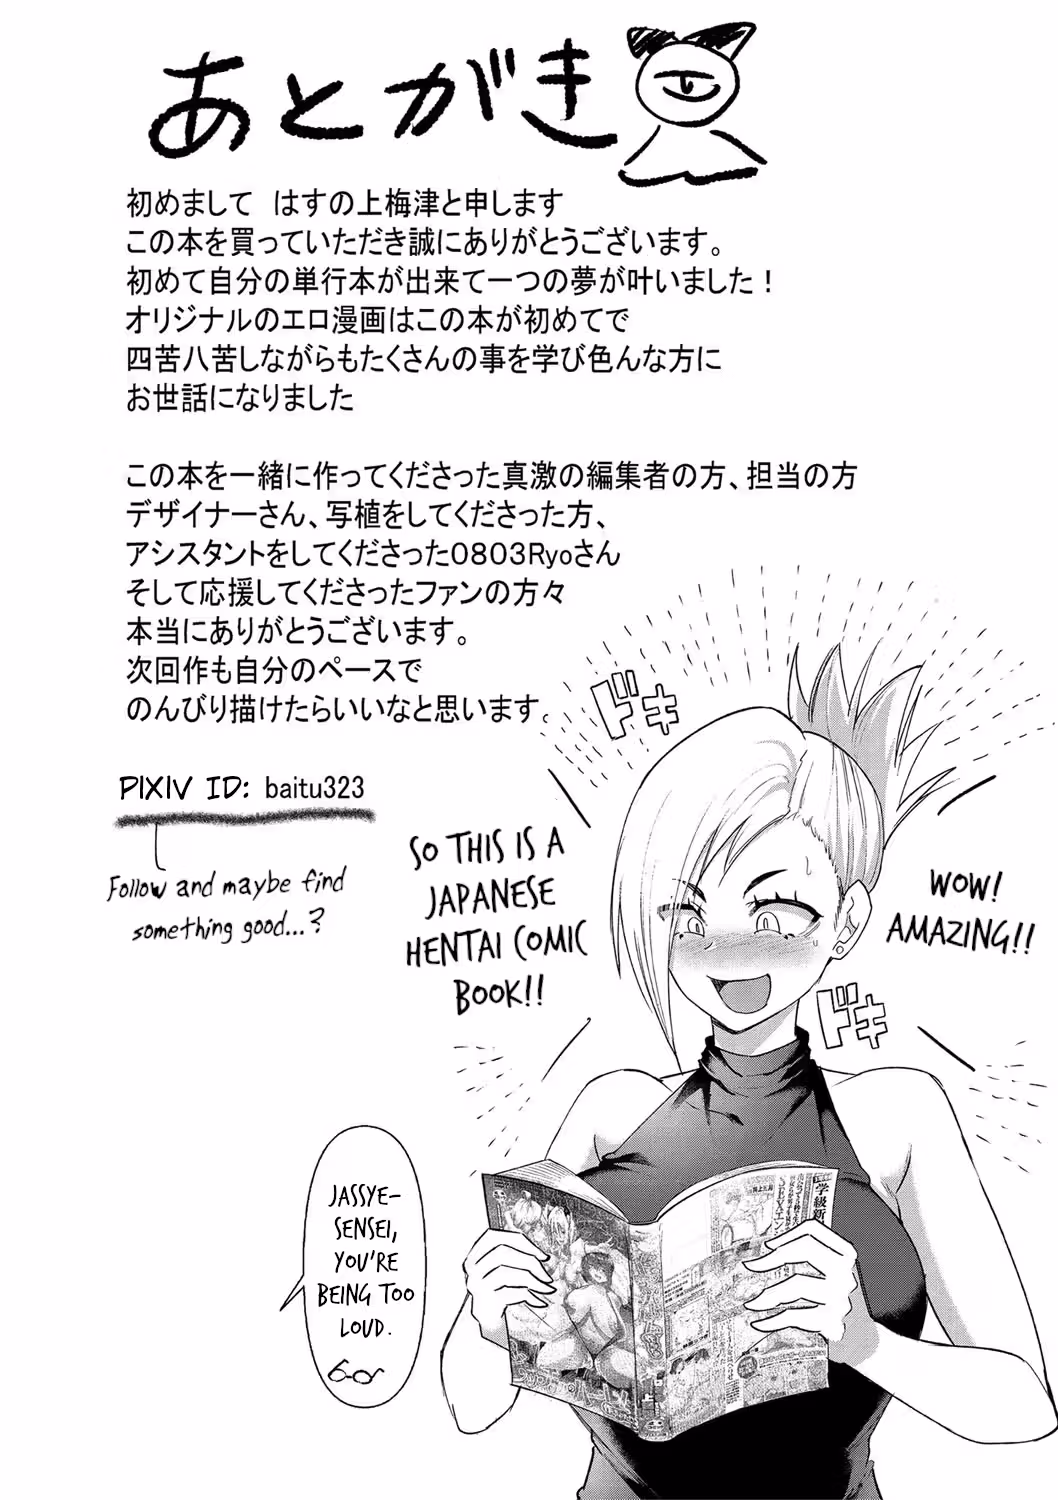 あとがき
初めまして はすの上梅津と申します
この本を買っていただき誠にありがとうございます。
初めて自分の単行本が出来て一つの夢が叶いました!
オリジナルのエロ漫画はこの本が初めてで
四苦八苦しながらもたくさんの事を学び色んな方に
お世話になりました
この本を一緒に作ってくださった真激の編集者の方、担当の方
デザイナーさん、写植をしてくださった方、
アシスタントをしてくださった0803Ryoさん
そして応援してくださったファンの方々
本当にありがとうございます。
次回作も自分のペースで
のんびり描けたらいいなと思います。
PIXIV ID: baitu323
Follow and maybe find
something good...?
ドキ
SO THIS IS A
JAPANESE
HENTAI COMIC
BOOK!!
WOW!
AMAZING!!
ドキ
JASSYE-
SENSEI,
YOU'RE
BEING TOO
LOUD.
学級新